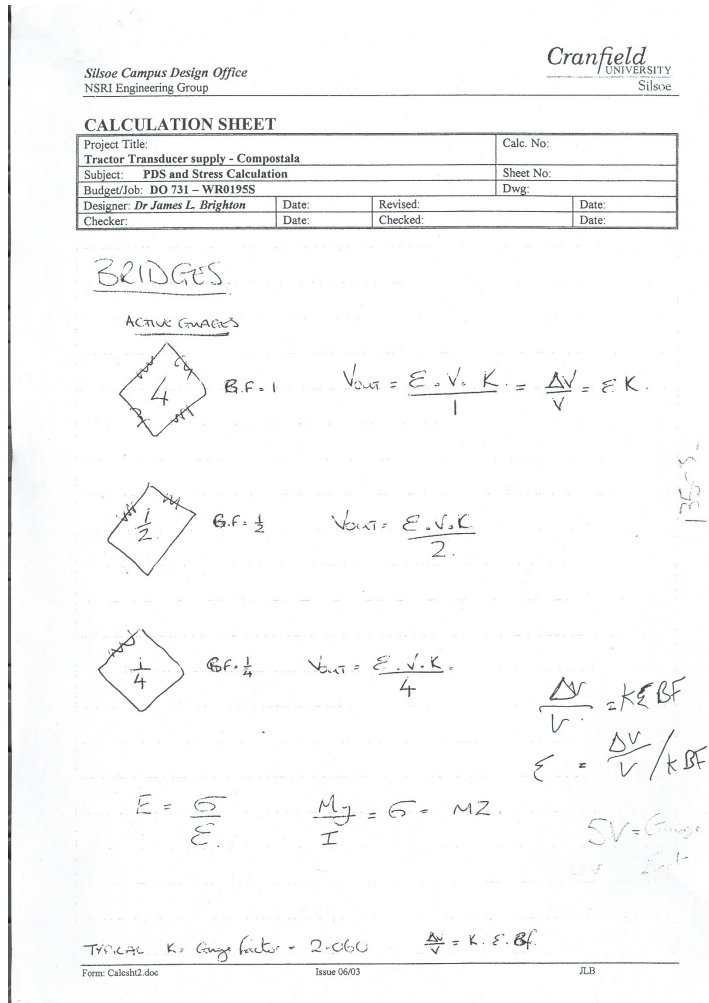 Cranfield
UNIVERSITY
Silsoe
Silsoe Campus Design Office
NSRI Engineering Group
CALCULATION SHEET
Project Title: Calc. No:
Tractor Transducer supply - Compostala
Subject: PDS and Stress Calculation Sheet No:
Budget/Job: DO 731 – WR0195S Dwg:
Designer: Dr James L. Brighton Date: Revised: Date:
Checker: Date: Checked: Date:
BRIDGES
ACTIVE GUAGES
4 B.F = 1 VOUT = Ɛ . V. K. / 1 = ΔV / V = Ɛ K.
1/2 B.F = 1/2 VOUT = Ɛ . V. K / 2.
1/4 BF = 1/4 VOUT = Ɛ . V. K. / 4
ΔV / V = KƐ BF
Ɛ = ΔV / V / K BF
E = σ / Ɛ. My / I = σ = MZ.
5V = Gauge
TYPICAL K = Gauge factor = 2.060 ΔV / V = K. Ɛ. Bf.
Form: Calcsht2.doc Issue 06/03 JLB